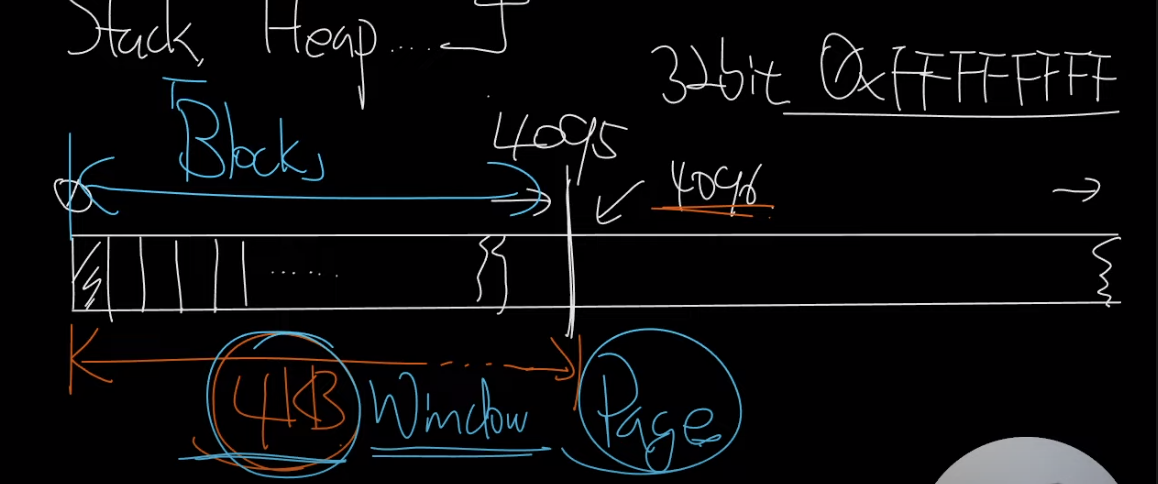 Stack, Heap.....
32bit 0xFFFFFFFF
Blocks
4095
0
4096
4KB Window Page